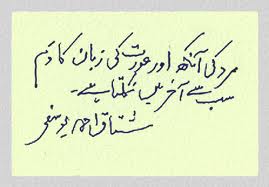 مرد کی آنکھ اور عورت کی زبان کا دَم
سب سے آخر میں نکلتا ہے۔
مشتاق احمد یوسفی